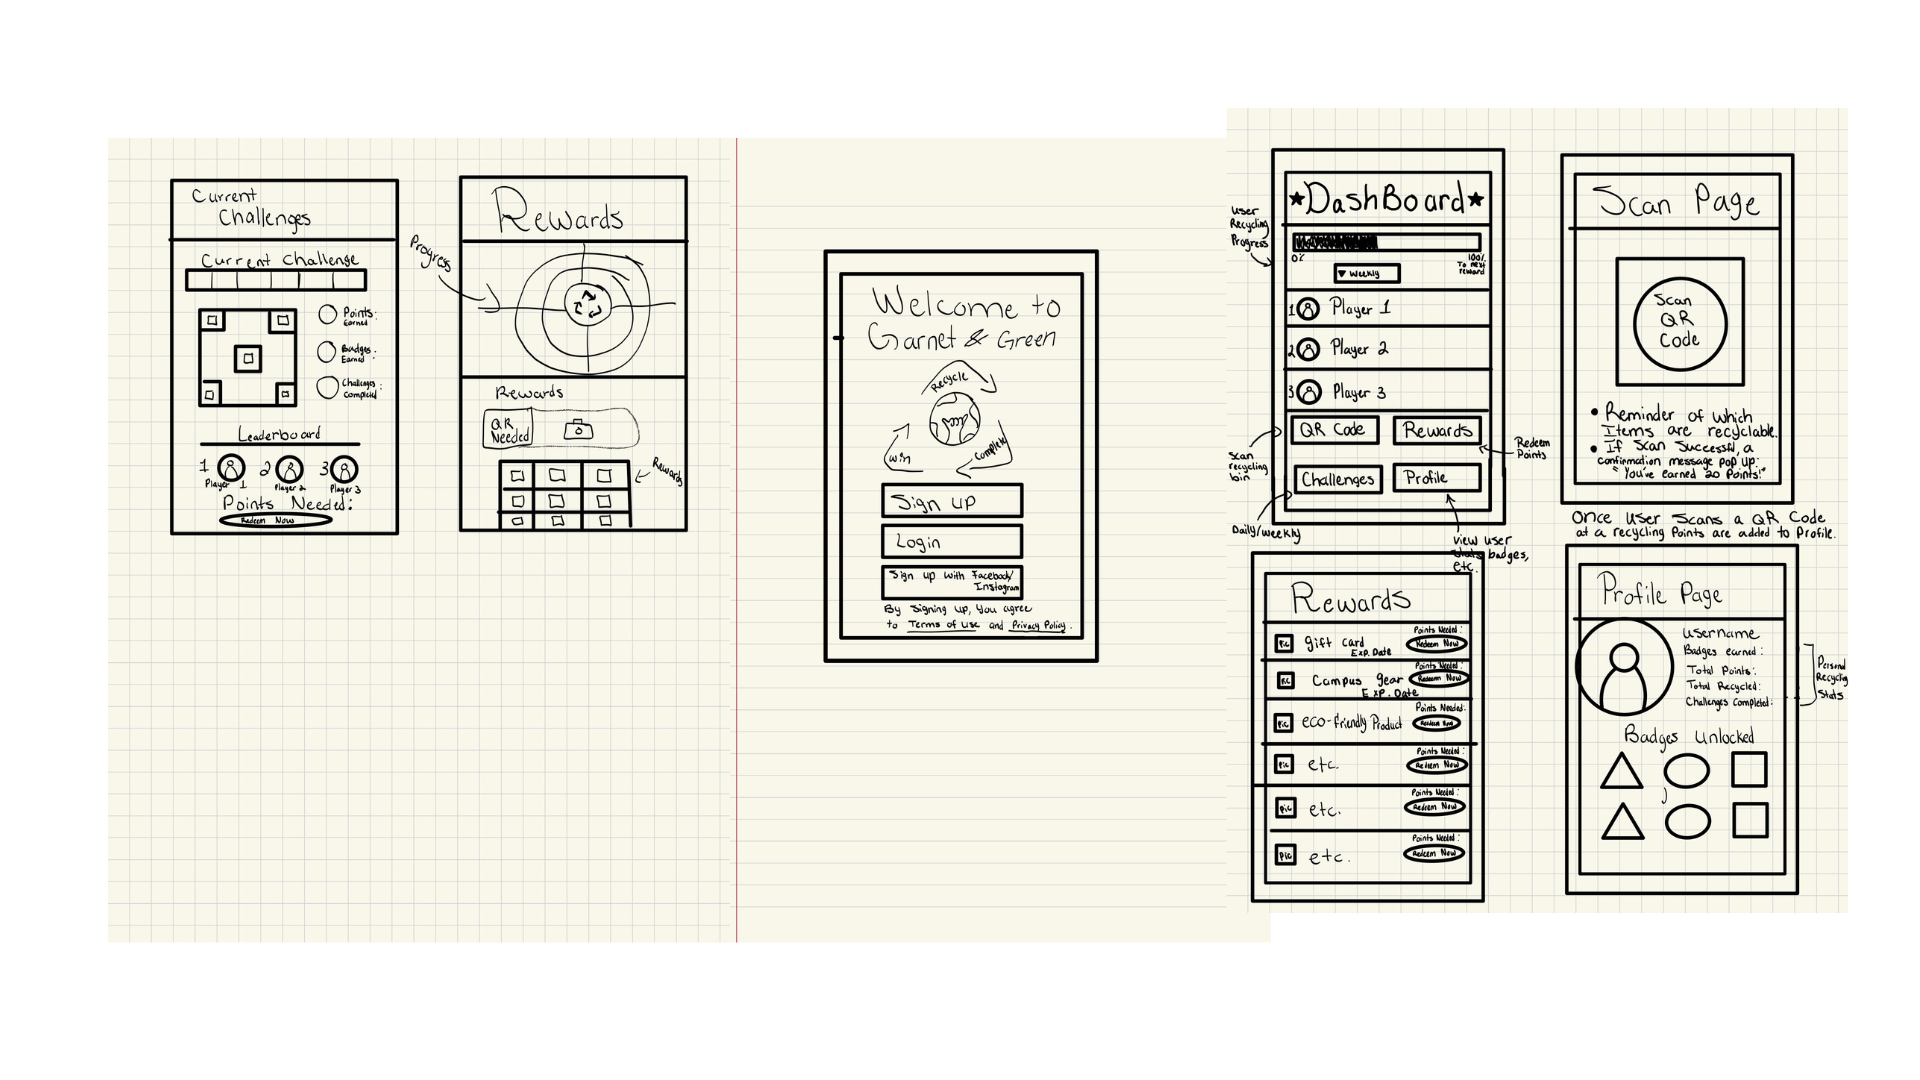 Current
Challenges
Current Challenge
Points:
Earned
Badges:
Earned
Challenges
Completed
Leaderboard
1 2 3
Player 1 Player 2 Player 3
Points Needed:
Redeem Now
Progress
Rewards
Rewards
QR
Needed
Rewards
Welcome to
Garnet & Green
Recycle
win
Complete
Sign up
Login
Sign up with Facebook/
Instagram
By signing up, you agree
to Terms of Use and Privacy Policy.
★DashBoard★
User
Recycling
Progress
0%
100%
To next
reward
▼ Weekly
1 Player 1
2 Player 2
3 Player 3
QR Code
Rewards
Challenges
Profile
Scan
recycling
bin
Redeem
Points
Daily/weekly
view user
stats, badges,
etc.
Scan Page
Scan
QR
Code
• Reminder of which
Items are recyclable.
• If Scan Successful, a
confirmation message pop up:
"You've earned 20 Points!"
Once User Scans a QR Code
at a recycling Points are added to Profile.
Rewards
Points Needed:
Pic gift card Redeem Now
Exp. Date
Points Needed:
Pic Campus gear Redeem Now
Exp. Date
Points Needed:
Pic eco-friendly Product Redeem Now
Points Needed:
Pic etc. Redeem Now
Points Needed:
Pic etc. Redeem Now
Points Needed:
Pic etc. Redeem Now
Profile Page
Username
Badges earned:
Total Points:
Total Recycled:
Challenges Completed:
Personal
Recycling
Stats
Badges Unlocked